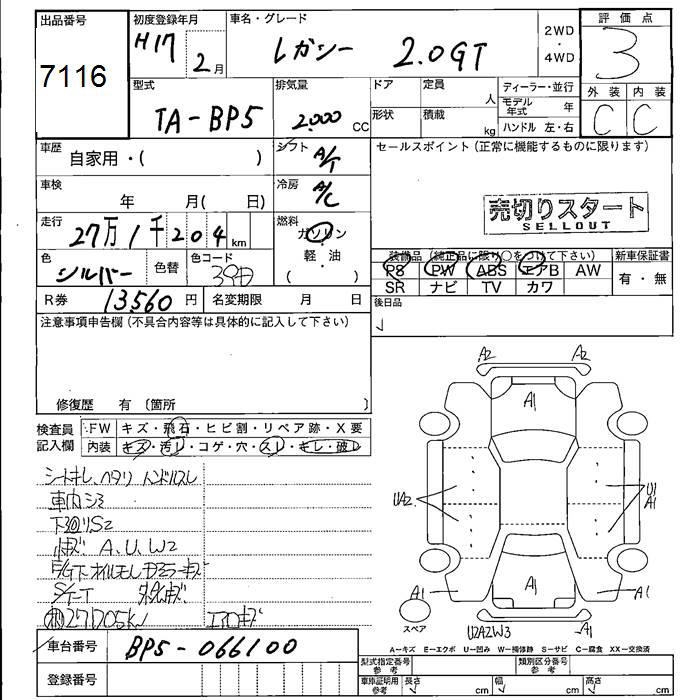 出品番号
7116
初度登録年月
H17 2月
車名・グレード
レガシー 2.0GT
2WD
・
4WD
評価点
3
外装 内装
C C
型式
TA-BP5
排気量
2,000 CC
ドア
形状
定員 人
積載 kg
ディーラー・並行
モデル年式 年
ハンドル 左・右
車歴
自家用・( )
シフト
A/T
セールスポイント (正常に機能するものに限ります)
車検
年 月( 日)
冷房
A/C
売切りスタート
SELLOUT
走行
27万1千204km
燃料
ガソリン
・
軽油
( )
色
シルバー
色替
色コード
39D
装備品 (純正品に限り○をつけて下さい)
新車保証書
PS PW ABS エアB AW
有・無
SR ナビ TV カワ
R券 13,560円
名変期限 月 日
後日品
注意事項申告欄 (不具合内容等は具体的に記入して下さい)
修復歴 有 〔箇所 〕
検査員記入欄
FW キズ・飛石・ヒビ割・リペア跡・X要
内装 キズ・汚レ・コゲ・穴・スレ・キレ・破レ
シートキレ、ヘタリ ハンドルスレ
車内シミ
下廻リS2
小キズ A、U、W2
E/GT オイルモレ
S/T-T
27D05KN エアロキズ
車台番号 BP5-066100
登録番号
A2 A2
A1
UA2
U1
A1
A1
A1 A1
スペア
U2A2W3
A−キズ E−エクボ U−凹み W−補修跡 S−サビ C−腐食 XX−交換済
型式指定番号 参考
類別区分番号 参考
車庫証明用 参考
長さ cm
幅 cm
高さ cm